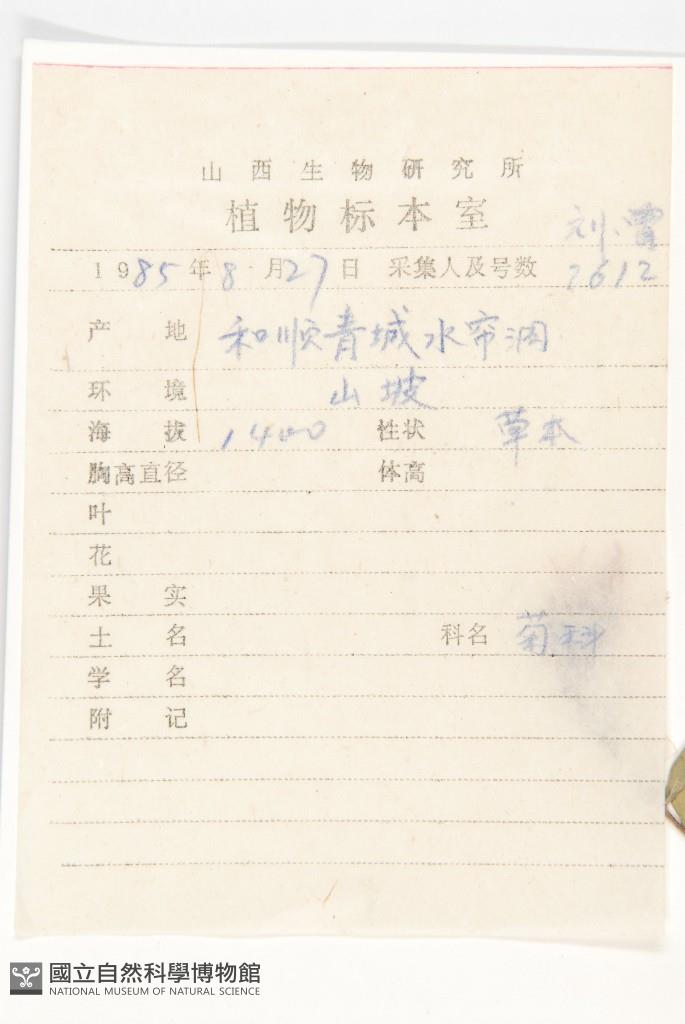 山西生物研究所
植物标本室
刘、曹
1985年8月27日 采集人及号数 2612
产地 和顺青城水帘洞
环境 山坡
海拔 1400 性状 草本
胸高直径 体高
叶
花
果实
土名 科名 菊科
学名
附记
國立自然科學博物館
NATIONAL MUSEUM OF NATURAL SCIENCE